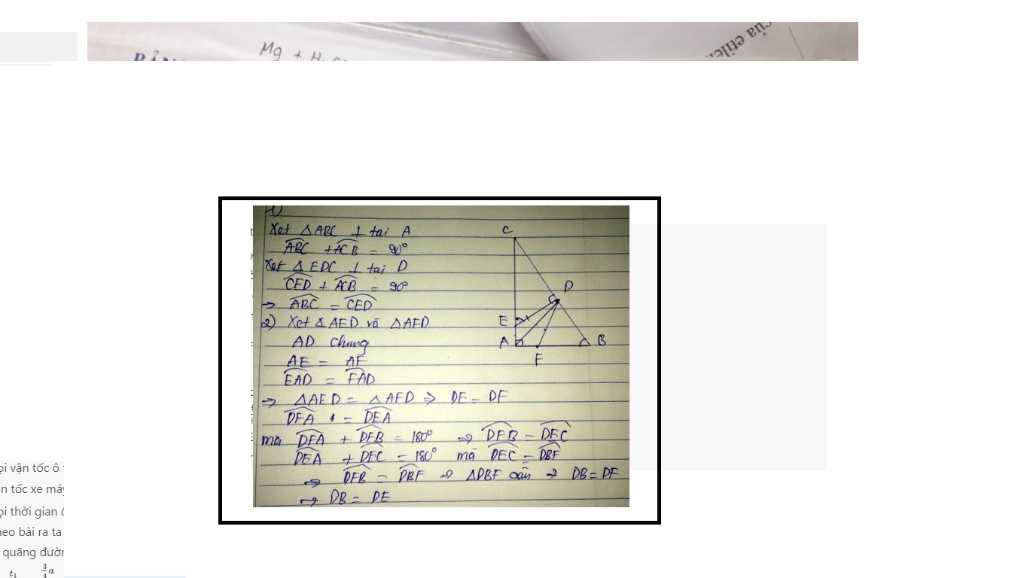 Mg + H₂
của etilen
1)
Xét △ABC ⊥ tại A
ABC + ACB = 90°
Xét △EDC ⊥ tại D
CED + ACB = 90°
→ ABC = CED
2) Xét △AED và △AFD
AD chung
AE = AF
EAD = FAD
→ △AED = △AFD ⇒ DE = DF
DFA = DEA
mà DFA + DFB = 180° → DFB = DEC
DEA + DEC = 180° mà DEC = DBF
→ DFB = DBF → △DBF cân → DB = DF
→ DB = DE
C
D
E
A
B
F
ọi vận tốc ô
n tốc xe máy
ọi thời gian
heo bài ra ta
quãng đườn
t₁ 3/4 a